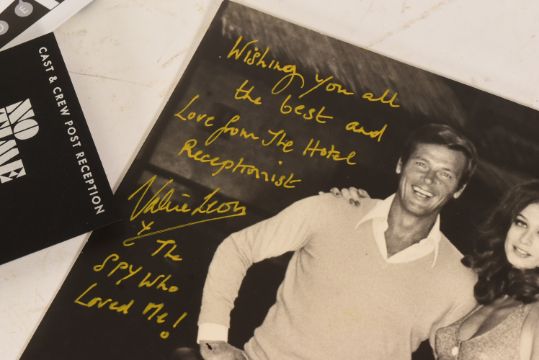 CAST & CREW POST RECEPTION
NO
TIME
Wishing you all
the best and
Love from The Hotel
Receptionist
Valerie Leon
x The
SPY Who
Loved Me!